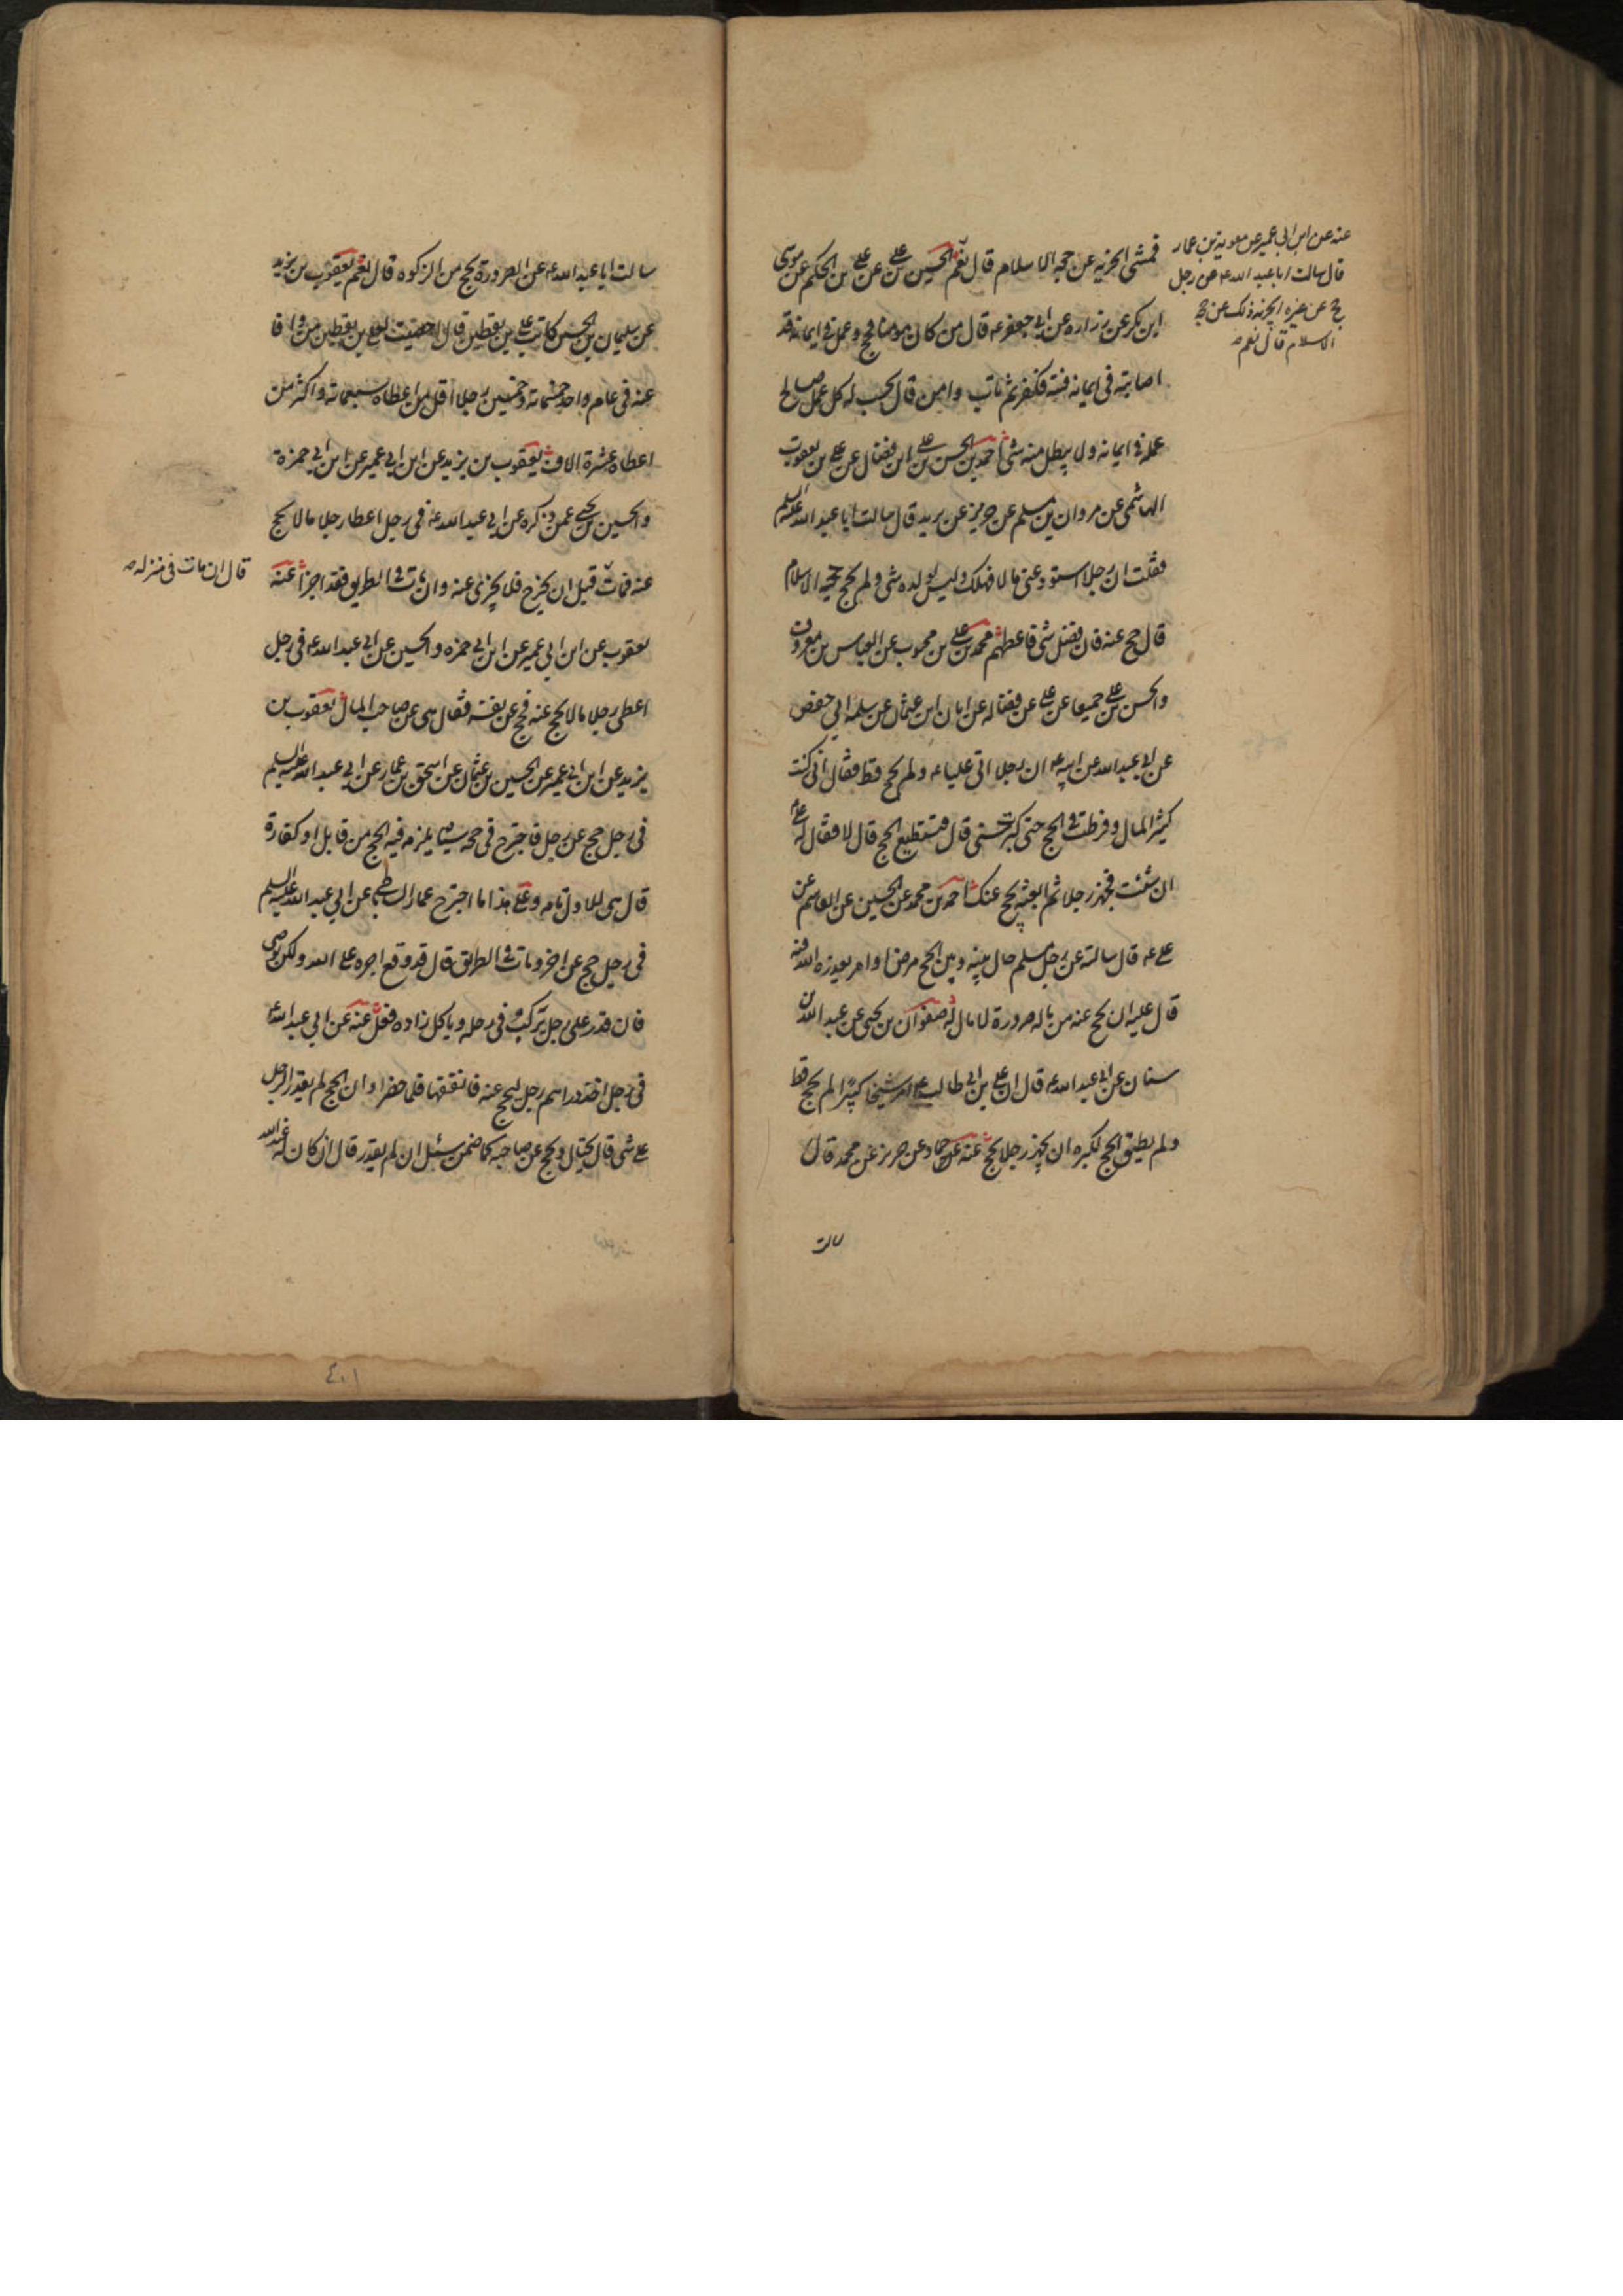 فمشى ايجزيه عن حجة الاسلام قال نعم الحسين بن علي عن علي بن الحكم عن موسى
ابن بكر عن زراره عن ابي جعفر ع قال من كان مومنا فحج وعمل في ايمانه قد
اصابته في ايمانه فتنه فكفر ثم تاب وامن قال يحسب له كل عمل صالح
عمله في ايمانه ولا يبطل منه شئ احمد بن الحسن بن علي ابن فضال عن علي بن يعقوب
الهاشمي عن مروان بن مسلم عن حريز عن بريد قال سالت ابا عبد الله عليه السلم
فقلت ان رجلا استودعني مالا فهلك وليس لولده شئ ولم يحج حجة الاسلام
قال حج عنه فان فضل شئ فاعطهم محمد بن علي بن محبوب عن العباس بن معروف
والحسن بن علي جميعا عن علي عن فضاله عن ابان ابن عثمان عن سلمه ابي حفص
عن ابي عبد الله عن ابيه ع ان رجلا اتى عليا ع ولم يحج قط فقال اني كنت
كثير المال وفرطت في الحج حتى كبرت سني قال فتستطيع الحج قال لا فقال له علي ع
ان شئت فجهز رجلا ثم ابعثه يحج عنك احمد بن محمد عن الحسين عن القاسم عن
علي ع قال سالته عن رجل مسلم حال بينه وبين الحج مرض او امر يعذره الله فيه
قال عليه ان يحج عنه من ماله صرورة لا مال له صفوان بن يحيى عن عبد الله بن
سنان عن ابي عبد الله ع قال ان علي بن ابي طالب ع امر شيخا كبيرا لم يحج قط
ولم يطق الحج لكبره ان يجهز رجلا يحج عنه عن حماد عن حريز عن محمد قال
سالت
عنه عن ابن ابي عمير عن معوية بن عمار
قال سالت ابا عبد الله ع عن رجل
حج عن غيره ايجزيه ذلك عن حجة
الاسلام قال نعم صح
سالت ابا عبد الله ع عن الصرورة يحج من الزكوه قال نعم يعقوب بن يزيد
عن سليمان بن الحسن كاتب علي بن يقطين قال احصيت لعلي بن يقطين من وافا
عنه في عام واحد خمسمائة وخمسين رجلا اقل من اعطاه سبعمائة واكثر من
اعطاه عشرة الاف يعقوب بن يزيد عن ابن ابي عمير عن ابن ابي حمزة
والحسين بن يحيى عمن ذكره عن ابي عبد الله ع في رجل اعطا رجلا مالا يحج
عنه فمات قبل ان يخرج فلا يجزي عنه وان مات في الطريق فقد اجزأ عنه
قال ان مات في منزله صح
يعقوب عن ابن ابي عمير عن ابن ابي حمزه والحسين عن ابي عبد الله ع في رجل
اعطى رجلا مالا يحج عنه فحج عن نفسه فقال هي عن صاحب المال يعقوب بن
يزيد عن ابن ابي عمير عن الحسين بن عثمان عن اسحق بن عمار عن ابي عبد الله عليه السلم
في رجل حج عن رجل فاجترح في حجه شيئا يلزمه فيه الحج من قابل او كفارة
قال هي للاول تامه وعلى هذا ما اجترح عمار الساباطي عن ابي عبد الله عليه السلم
في رجل حج عن اخر ومات في الطريق قال قد وقع اجره على الله ولكن يوصي
فان قدر على رجل يركب في رحله وياكل زاده فعل عنه عن ابي عبد الله ع
في رجل اخذ دراهم رجل ليحج عنه فانفقها فلما حضر اوان الحج لم يقدر الرجل
على شئ قال يحتال ويحج عن صاحبه كما ضمن سئل ان لم يقدر قال ان كان له عند الله
٤٠١